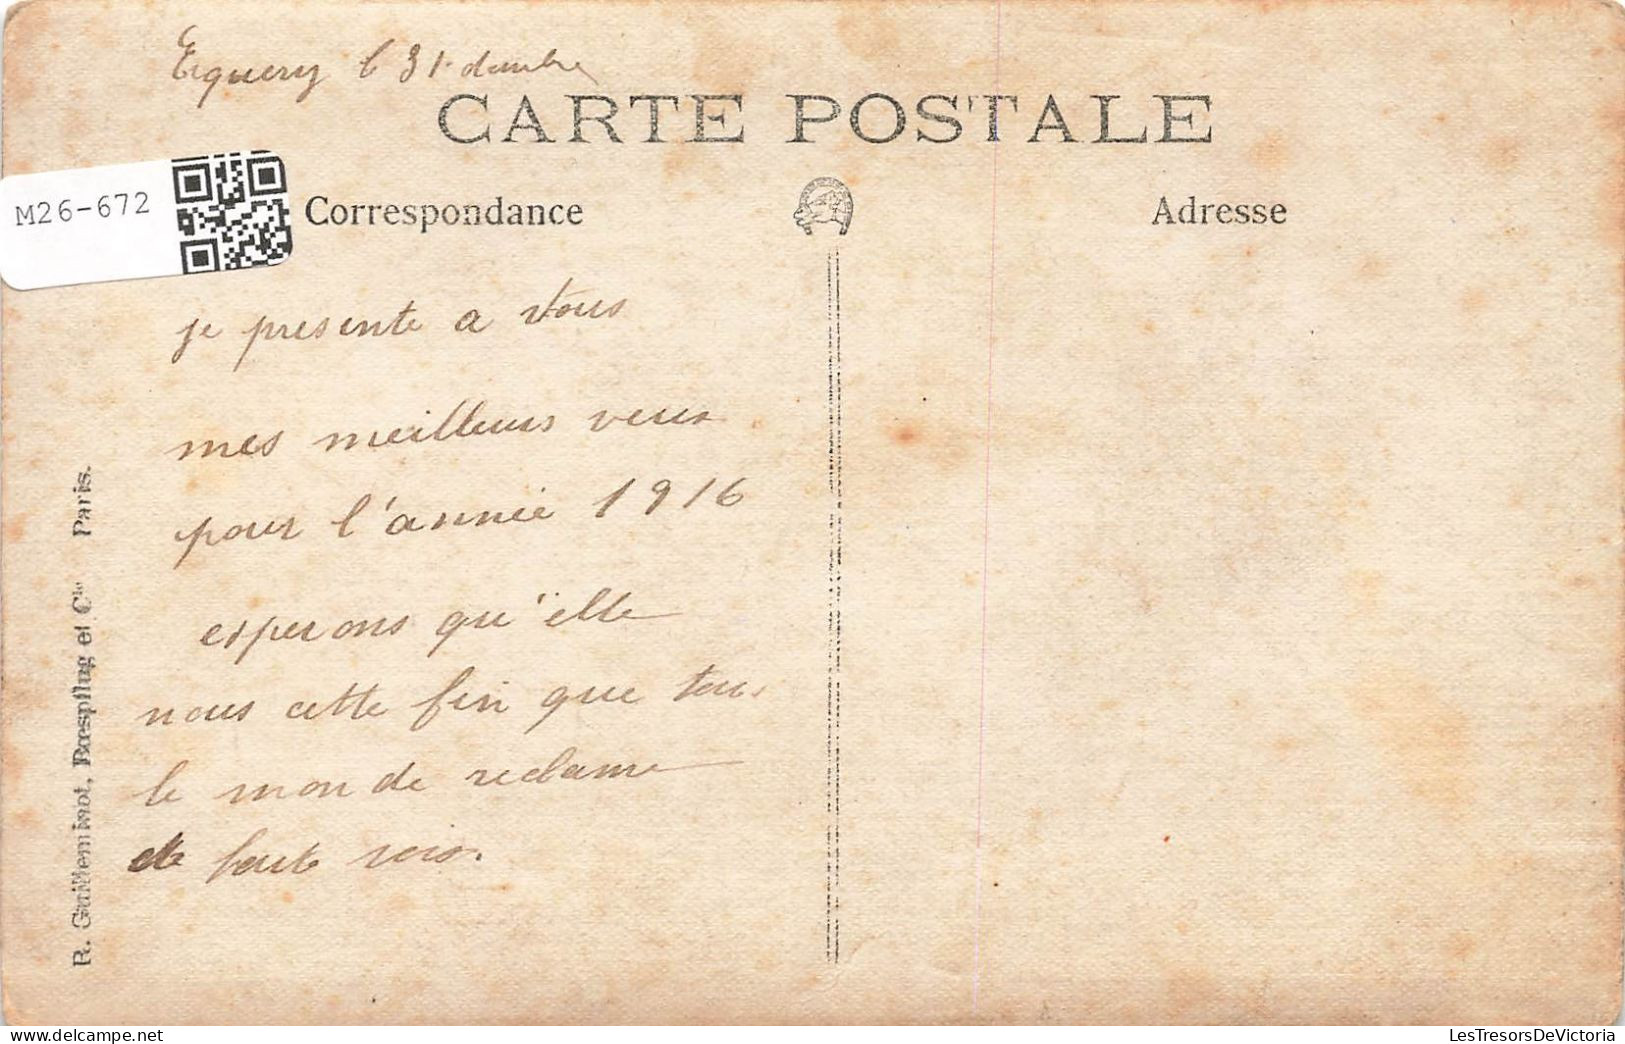 Erquery le 31 decembre
CARTE POSTALE
M26-672
Correspondance
Adresse
je presente a vous
mes meilleurs veux
pour l'année 1916
esperons qu'elle
nous cette fin que tous
le monde reclame
de haute voix.
R. Guilleminot, Bœspflug et Cie Paris.
delcampe.net
LesTresorsDeVictoria